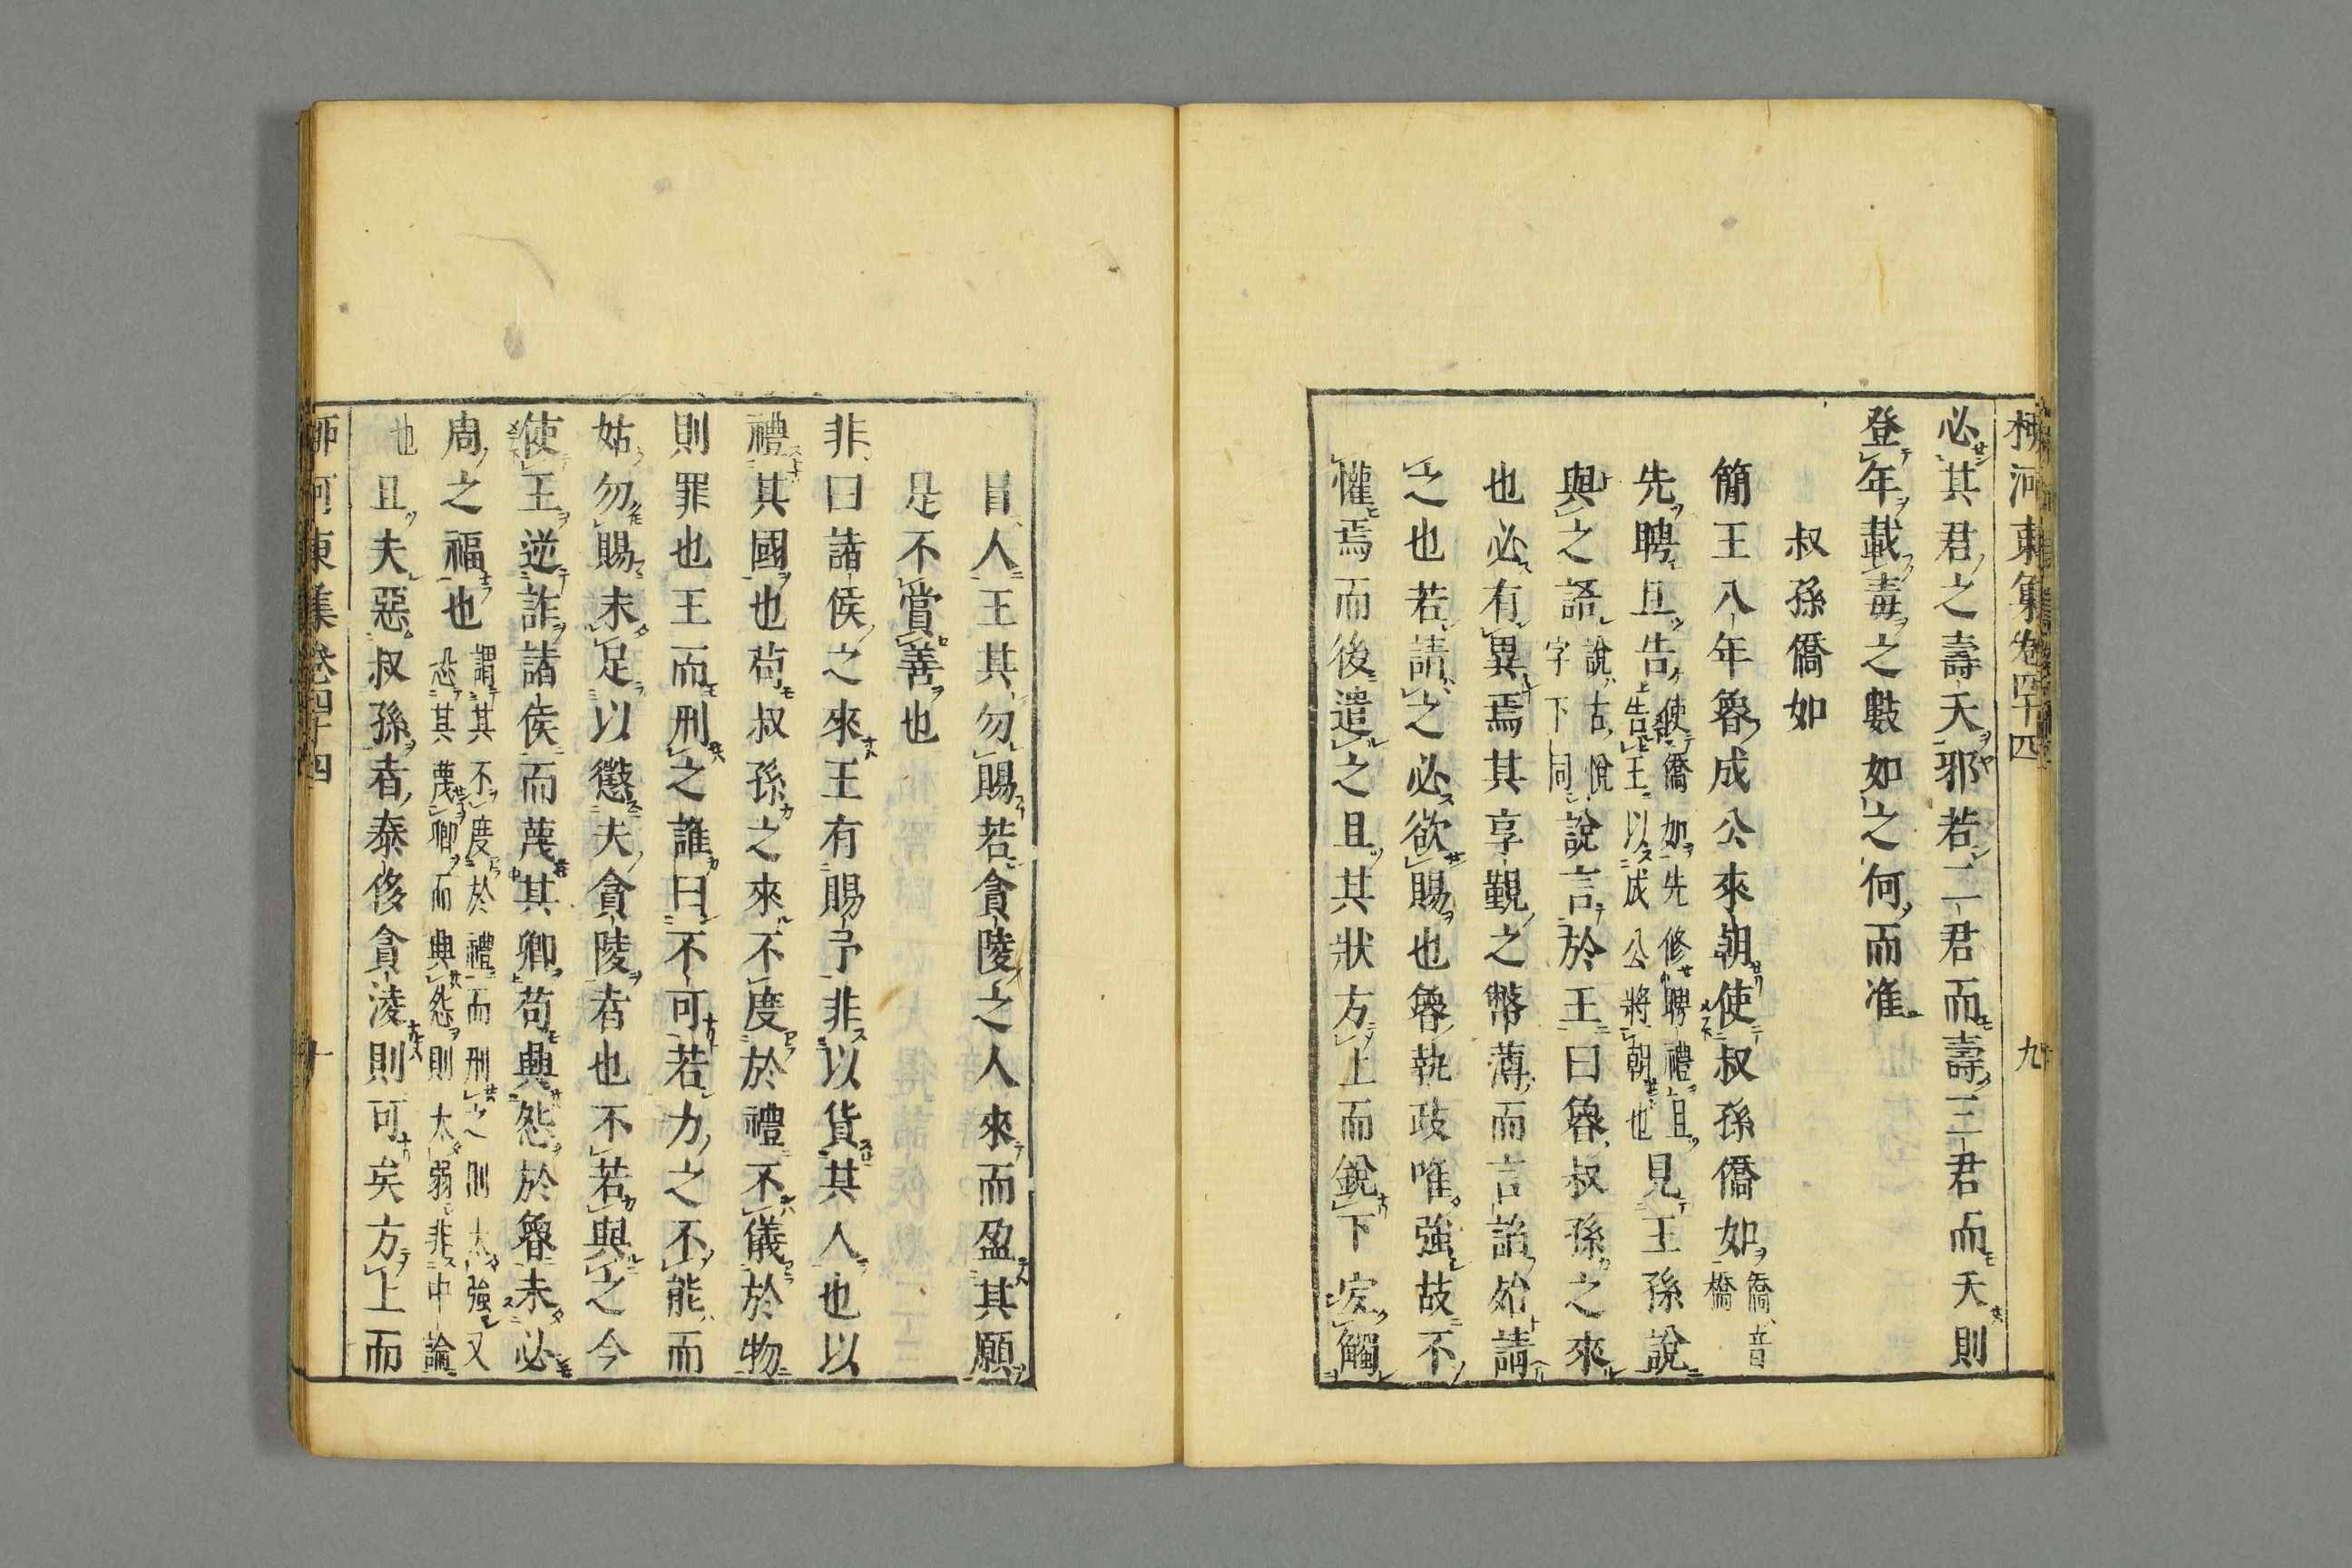 柳河東集卷四十四 九
必其君之壽夭邪若二君而壽三君而夭則
登年載毒之數如之何而准
叔孫僑如
簡王八年魯成公來朝使叔孫僑如僑音橋
先聘且告使僑如先修聘禮且告王以成公將朝也見王孫說
與之語說古悅字下同說言於王曰魯叔孫之來
也必有異焉其享覲之幣薄而言諂殆請
之也若請之必欲賜也魯執政唯強故不
懽焉而後遣之且其狀方上而銳下宜觸
冒人王其勿賜若貪陵之人來而盈其願
是不賞善也
非曰諸侯之來王有賜予非以貨其人也以
禮其國也苟叔孫之來不度於禮不儀於物
則罪也王而刑之誰曰不可若力之不能而
姑勿賜未足以懲夫貪陵者也不若與之今
使王逆詐諸侯而蔑其卿苟興怨於魯未必
周之福也謂其不度於禮而刑之則太強又恐其蔑卿而興怨則太弱非中論
也且夫惡叔孫者泰侈貪淩則可矣方上而
柳河東集卷四十四 十